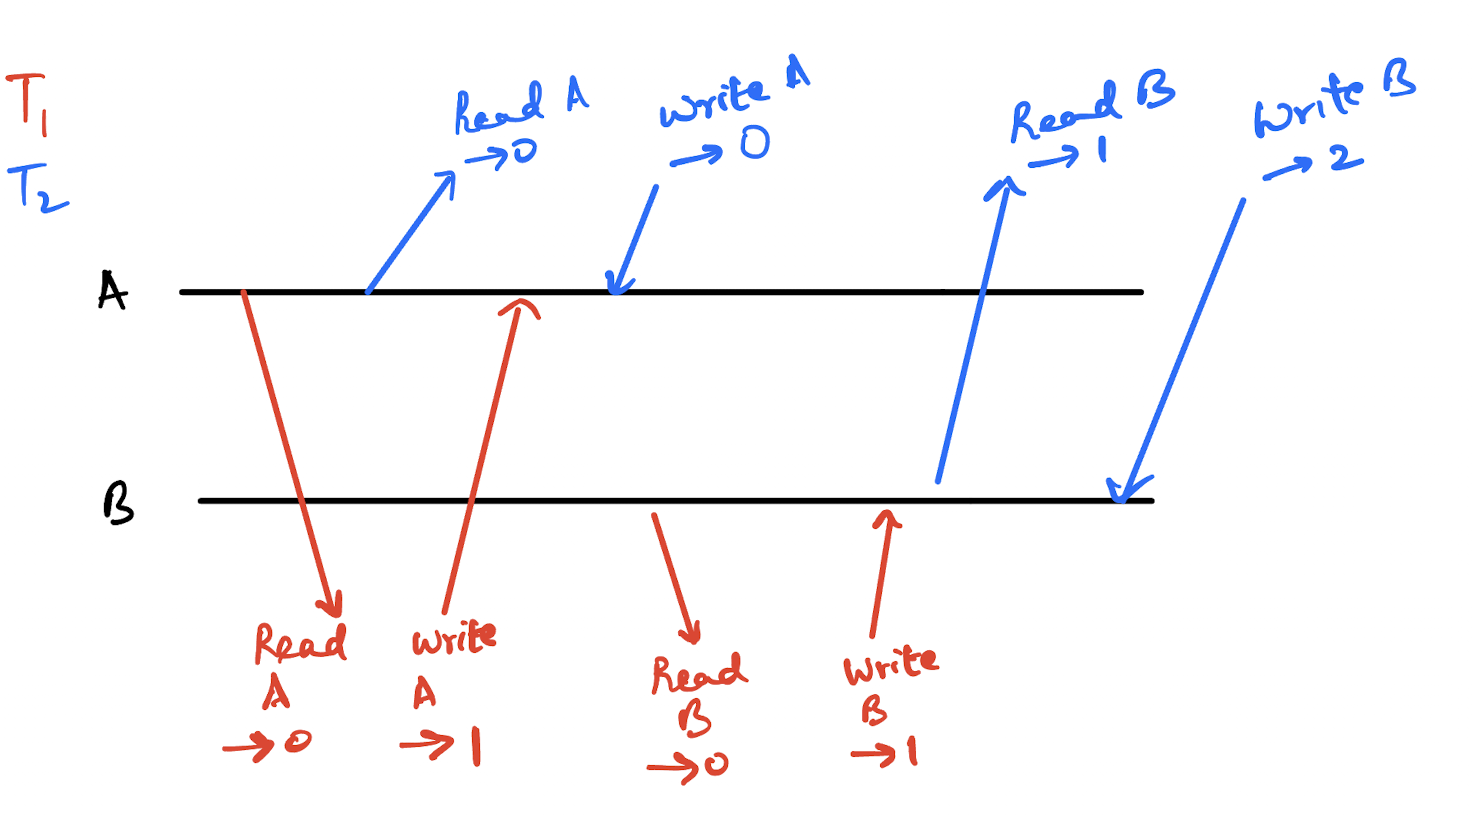 T1
T2
Read A
→0
Write A
→ 0
Read B
→ 1
Write B
→ 2
A
B
Read
A
→ 0
Write
A
→ 1
Read
B
→0
Write
B
→ 1